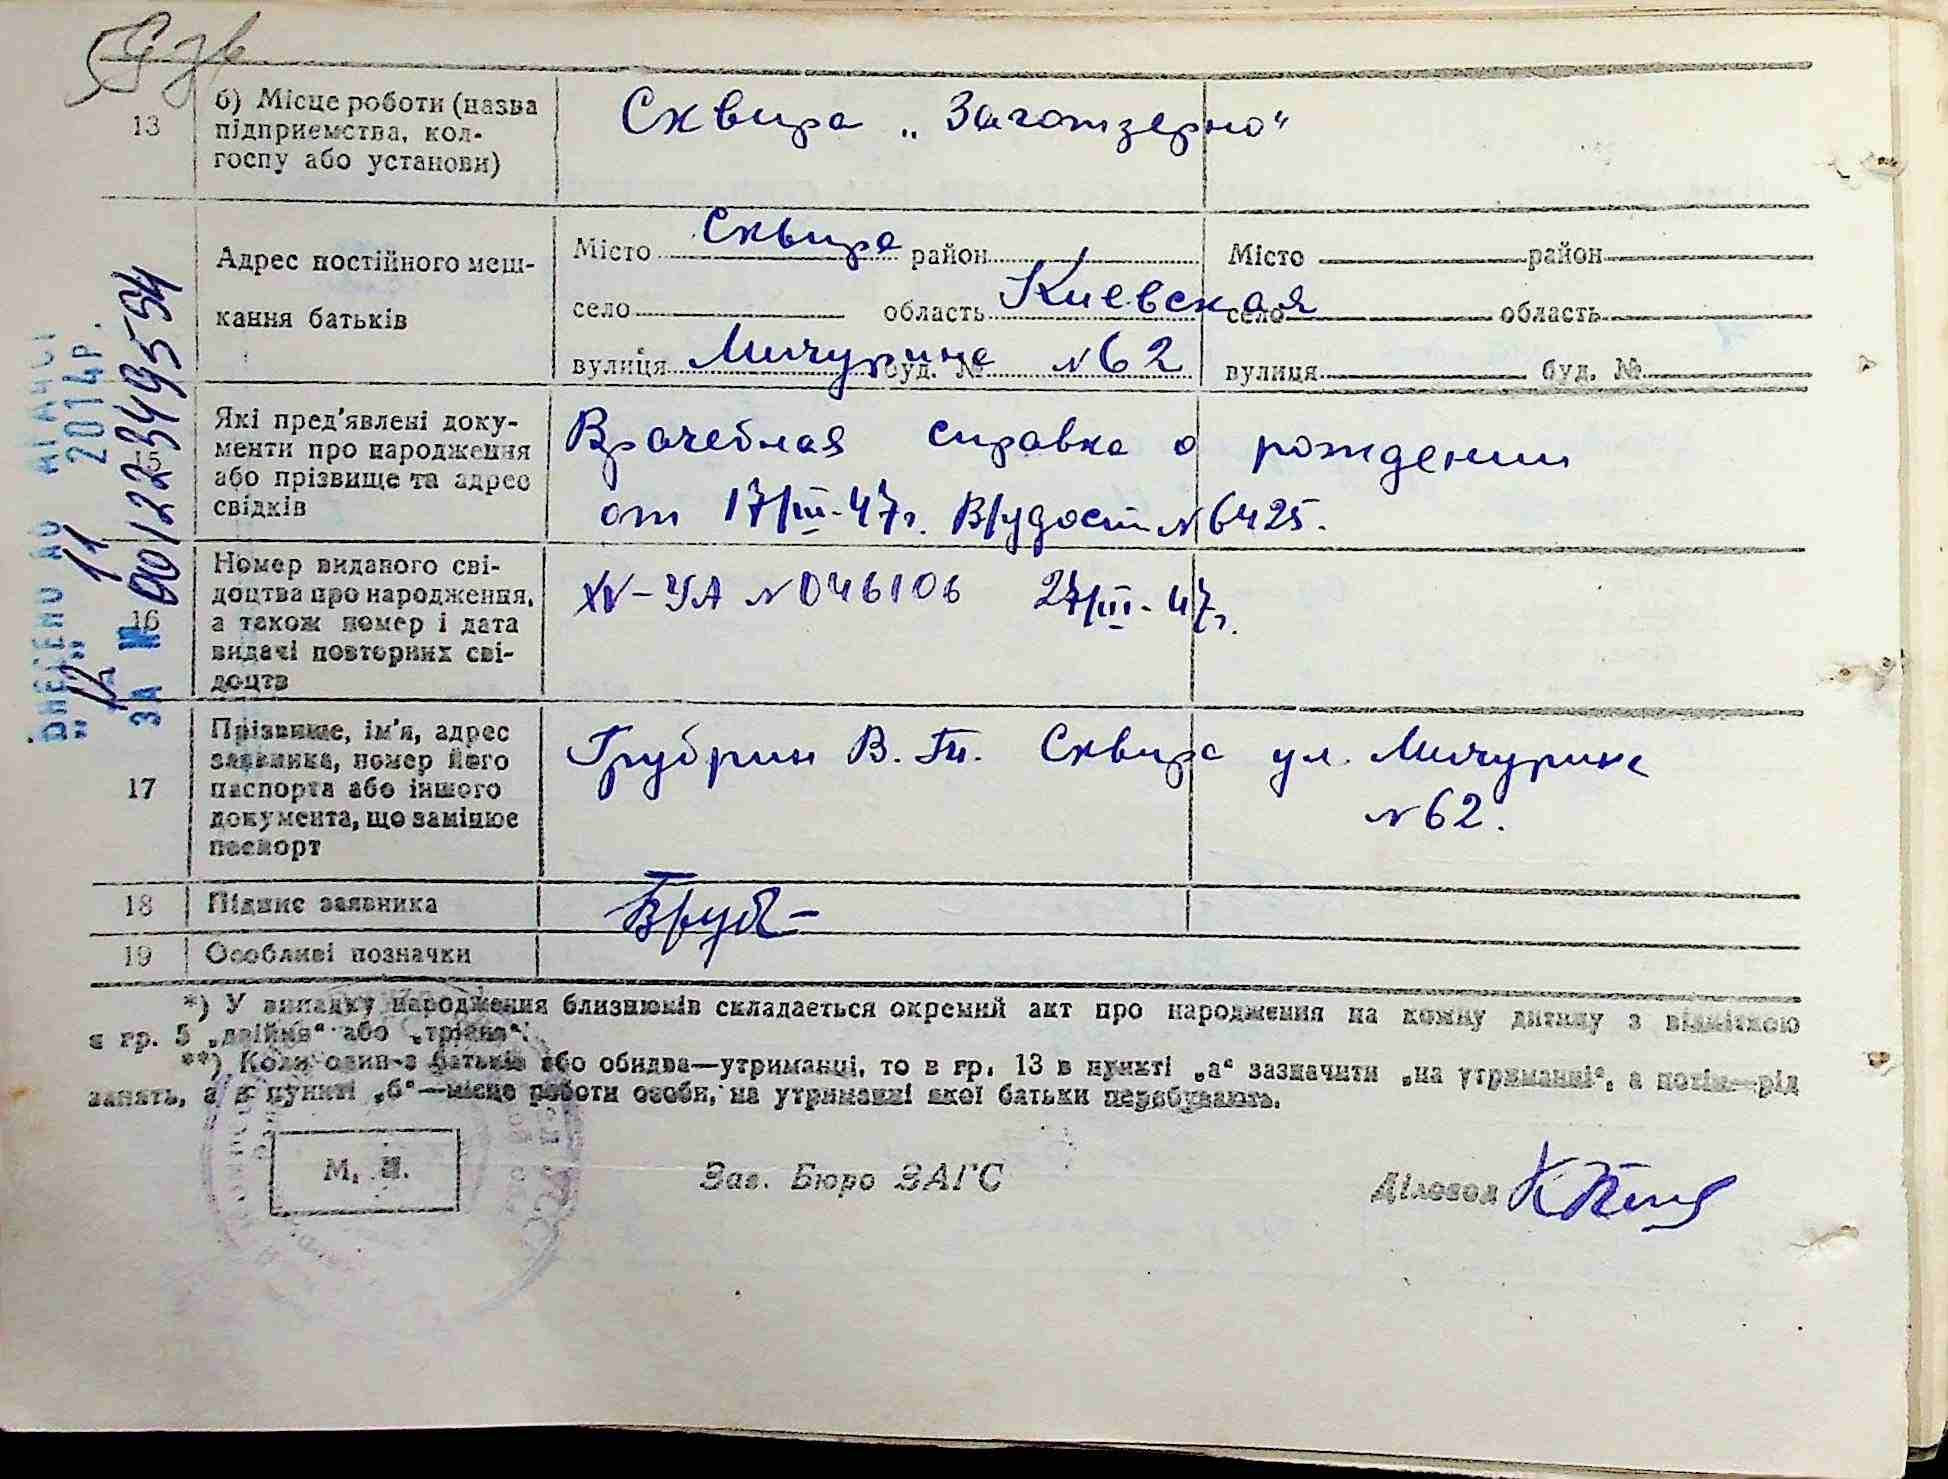 13
б) Місце роботи (назва
підприємства, кол-
госпу або установи)
Сквира „Заготзерно“
Адрес постійного меш-
кання батьків
Місто Сквира район
село область Киевская
вулиця Мичурина буд. № №62
Місто район
село область
вулиця буд. №
15
Які пред'явлені доку-
менти про народження
або прізвище та адрес
свідків
Врачебная справка о рождении
от 17/III-47г. В/удост №6425.
16
Номер виданого сві-
доцтва про народження,
а також номер і дата
видачі повторних сві-
доцтв
XV-УА №046106 27/III-47г.
17
Прізвище, ім'я, адрес
заявника, номер його
паспорта або іншого
документа, що замінює
паспорт
Грубрин В. Т. Сквира ул. Мичурина
№62.
18
Підпис заявника
19
Особливі позначки
*) У випадку народження близнюків складається окремий акт про народження на кожну дитину з відміткою
в гр. 5 „двійня“ або „трійня“.
**) Коли один з батьків або обидва—утриманці, то в гр. 13 в пункті „а“ зазначити „на утриманні“, а потім—рід
занять, а в пункті „б“—місце роботи особи, на утриманні якої батьки перебувають.
М. П.
Зав. Бюро ЗАГС
Діловод
ВНЕСЕНО ДО ДРАЦСГ
„12“ 11 2014р.
ЗА № 00122349554